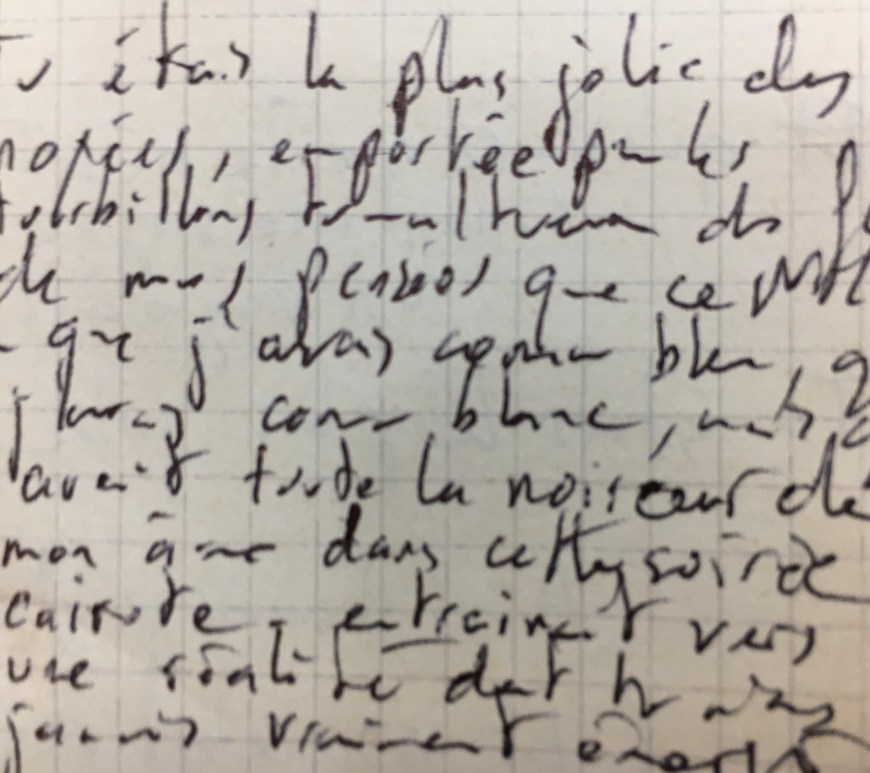 Tu étais la plus jolie des
noyées, emportée par les
tourbillons tumultueux du
de mes pensées que ce
que j'avais connu bleu,
j'avais connu blanc, mais
avait toute la noirceur de
mon âme dans cette soirée
cairote, entrainant vers
une réalité dont tu n'as
jamais vraiment émergé